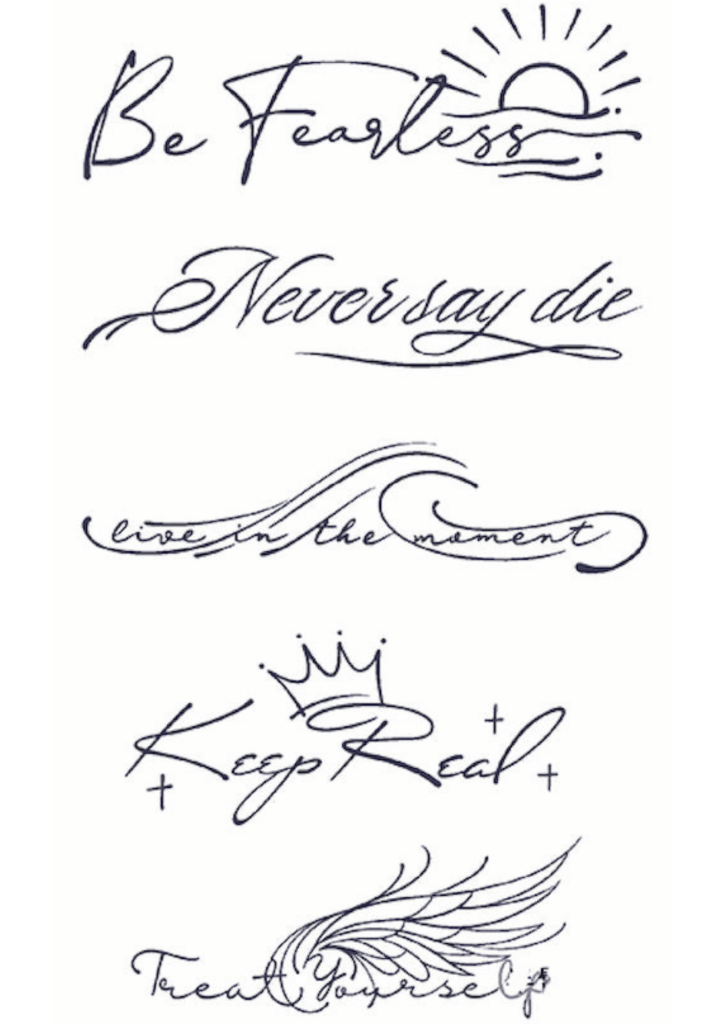 Be Fearless
Never say die
live in the moment
Keep Real
Treat Yourself